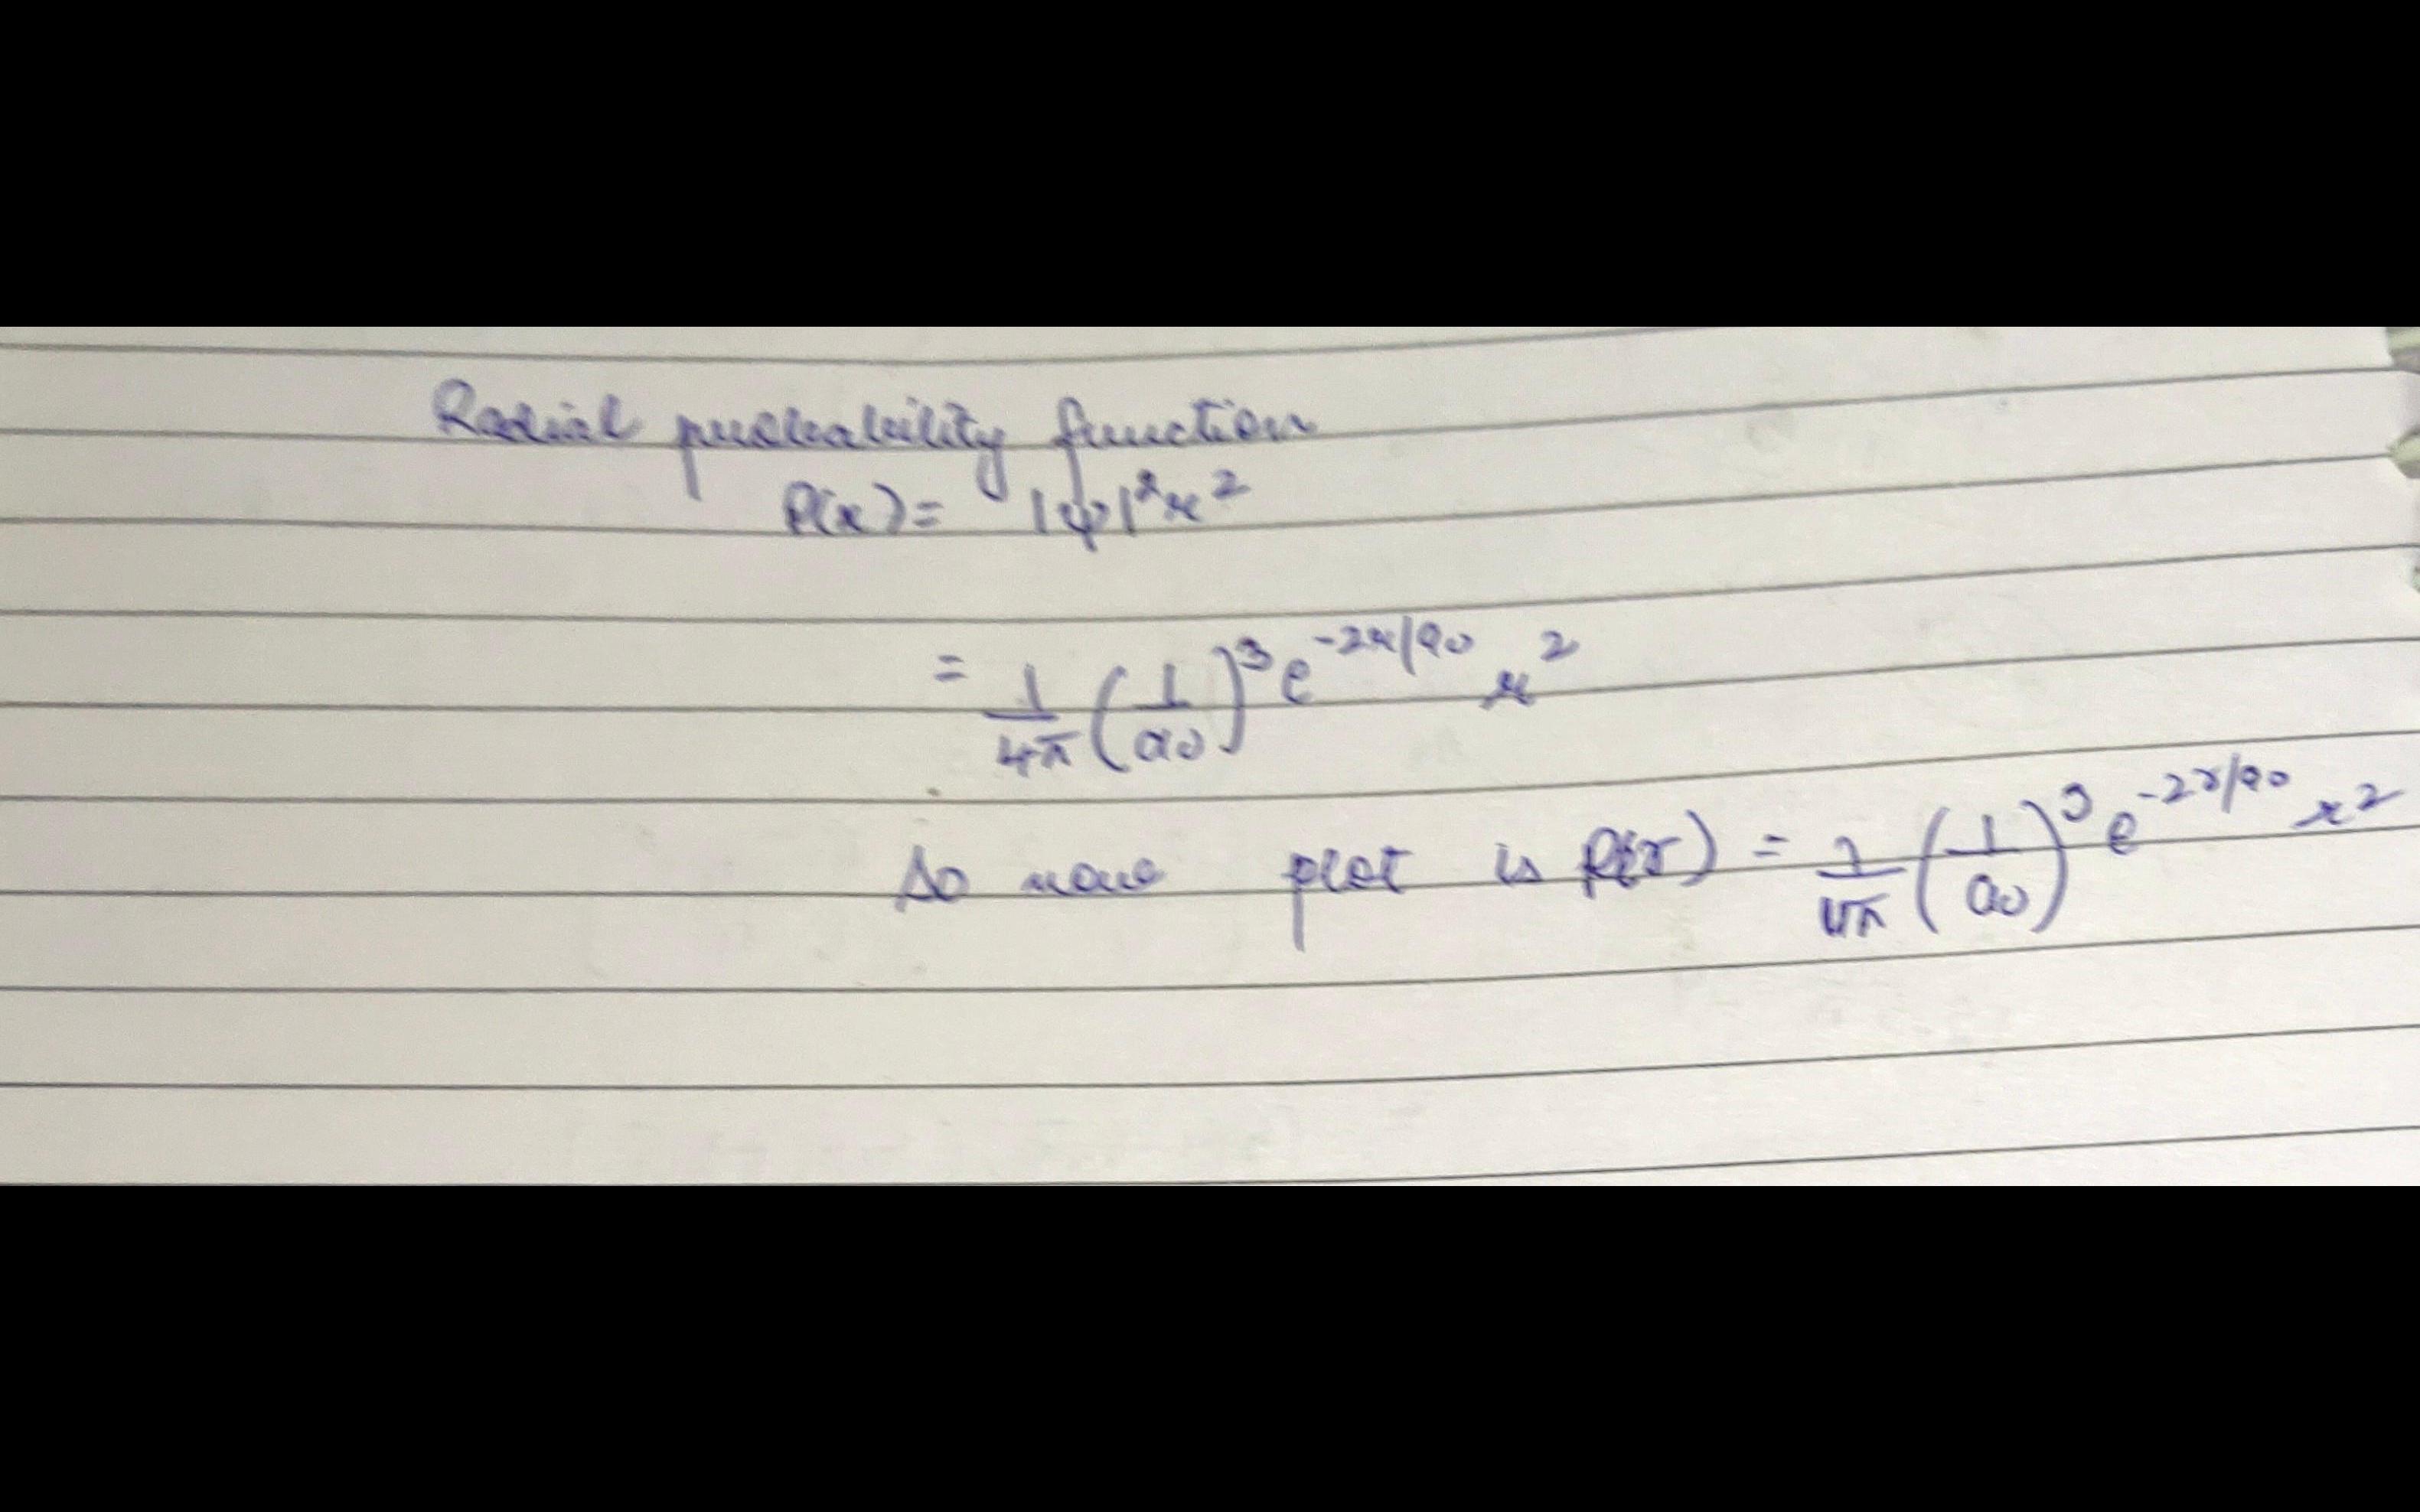 Radial probability function
P(r) = |ψ|²r²
= 1/4π (1/a0)³ e^-2r/a0 r²
So now plot is P(r) = 1/4π (1/a0)³ e^-2r/a0 r²